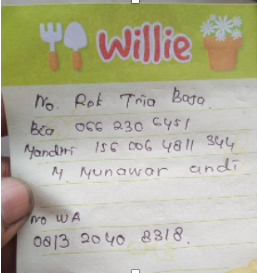 Willie
No. Rek Tria Baja
Bca 066 230 6451
Mandiri 156 006 4811 344
M. Munawar andi
No WA
0813 2040 8318.